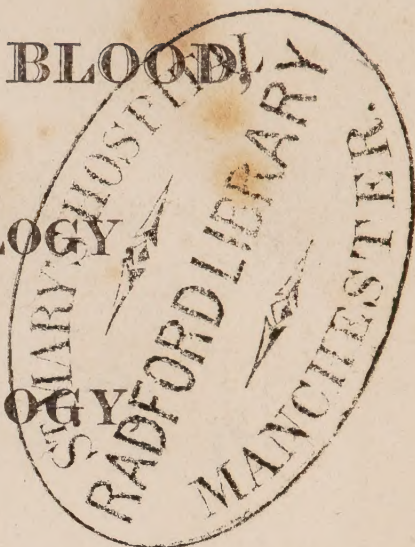 BLOOD,
LOGY
OGY
ST MARY'S HOSPITAL
RADFORD LIBRARY
MANCHESTER.